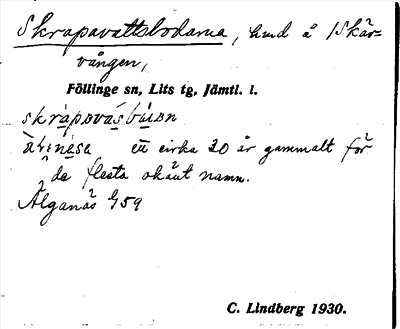 Skrapavattsbodarna, hmd å Skär=
vången,
Föllinge sn, Lits tg, Jämtl. l.
ett cirka 30 år gammalt för
de flesta okänt namn.
Älganäs 9/59
C. Lindberg 1930.